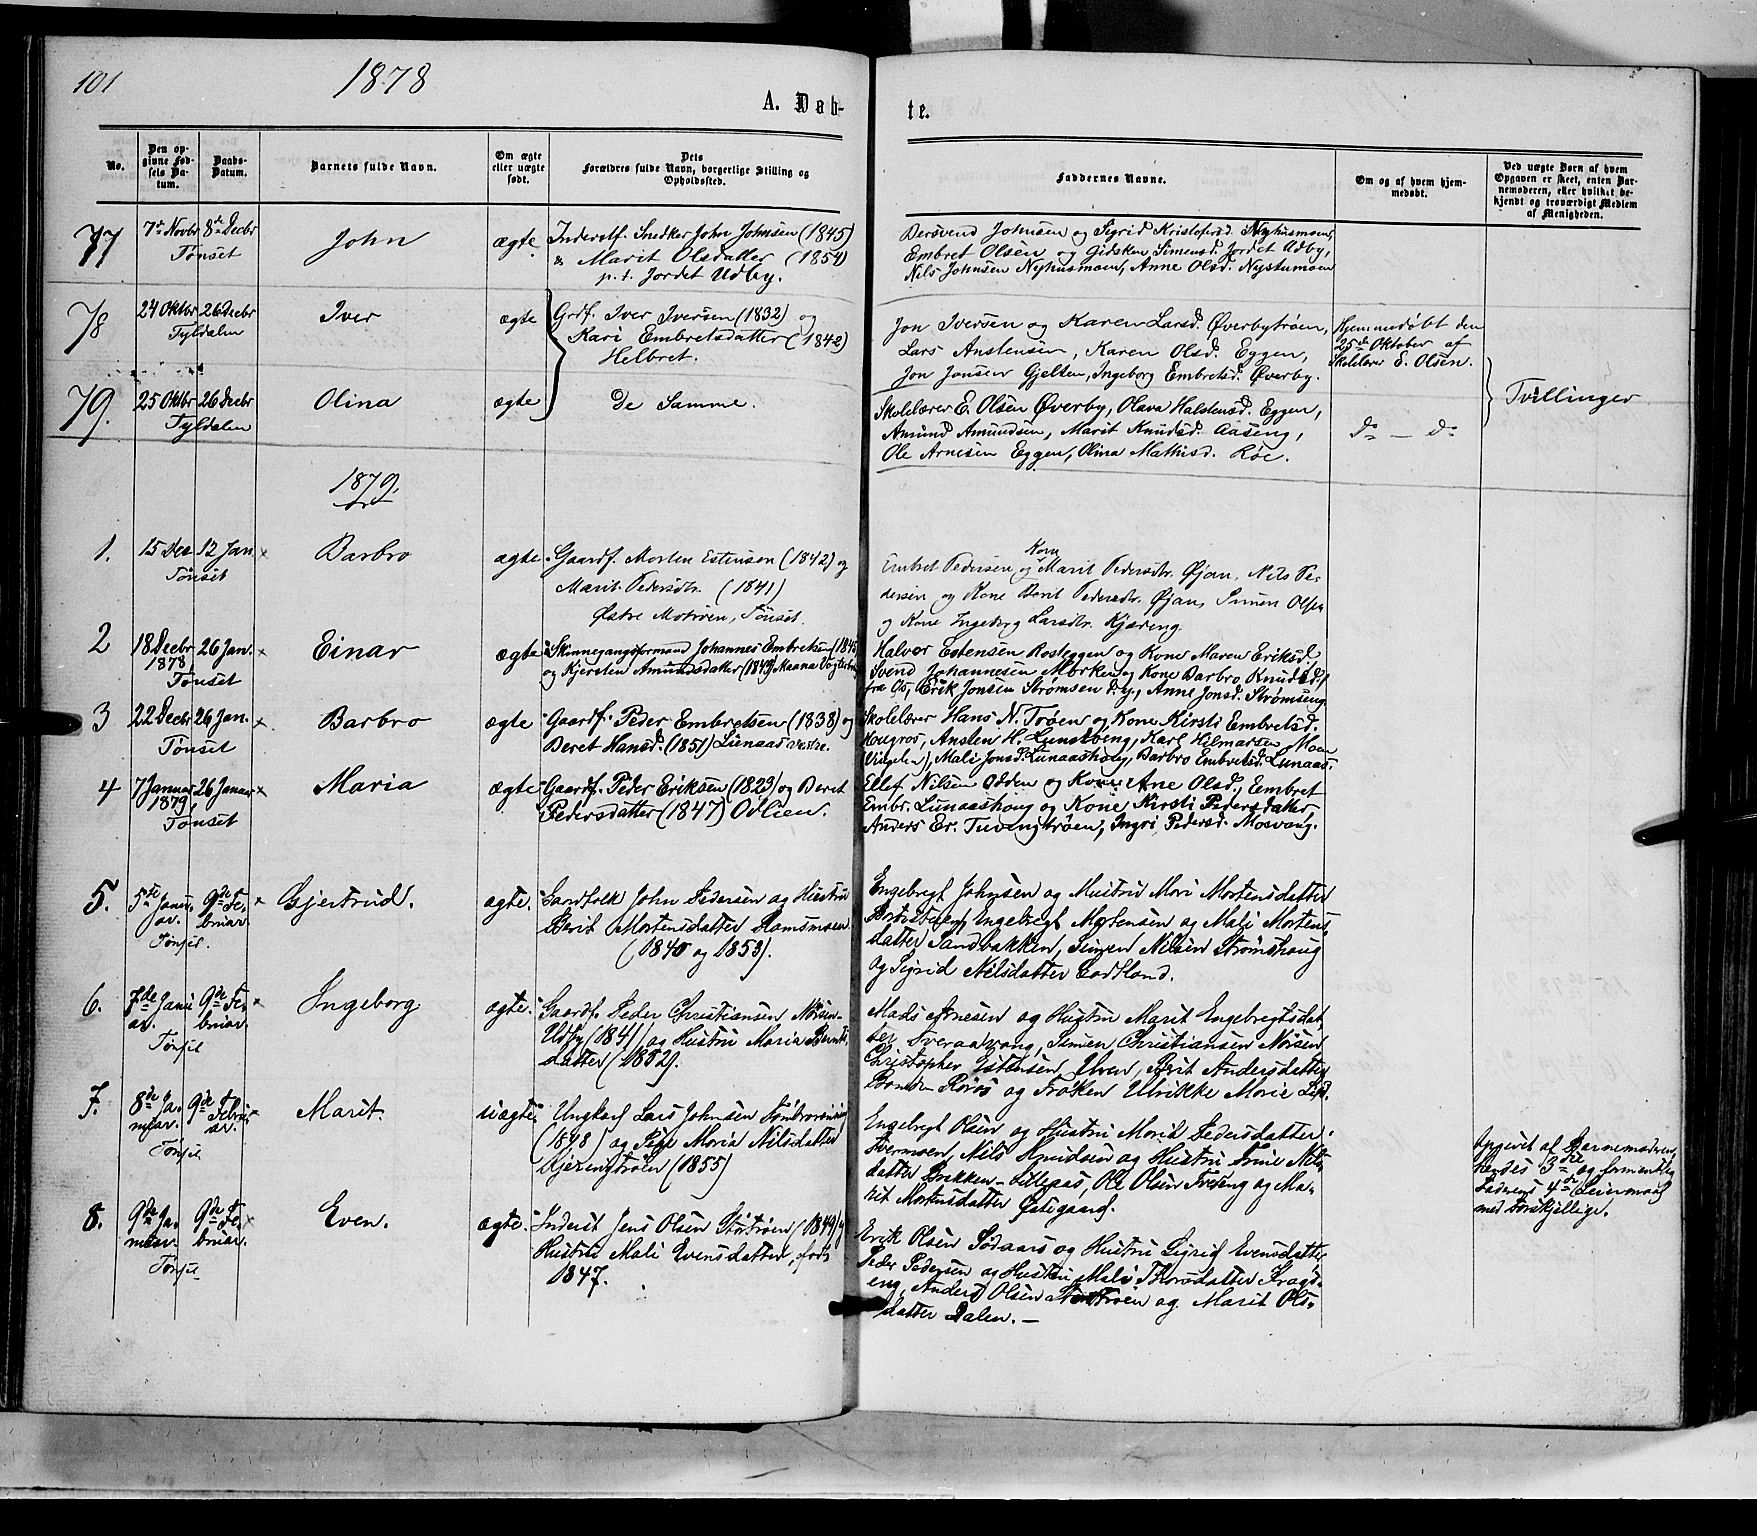 101
1878
A. Døb-
te.
No.
Den op-
givne Fød-
sels Da-
tum.
Daabs-
Datum.
Barnets fulde Navn.
Om ægte
eller uægte
født.
Dets
Forældres fulde Navn, borgerlige Stilling og
Opholdssted.
Faddernes Navne.
Om og af hvem hjem-
medøbt.
Ved uægte Børn af hvem
Opgaven er skeet, enten Bar-
nemoderen, eller hvilket be-
kjendt og troværdigt Medlem
af Menigheden.
77
7de Novbr 8de Decbr
Tønset
John
ægte
Inderstf. Snedker John Johnsen (1845)
& Marit Olsdatter (1854)
p. t. Jordet Udby.
Bersvend Johnsen og Sigrid Kristofersd. Nyhusmoen,
Embret Olsen og Gidsken Simensd. Jordet Udby,
Nils Johnsen Nyhusmoen, Anne Olsd. Nystumoen
78
24 Oktbr 26 Decbr
Tyldalen
Iver
ægte
Grdf. Iver Iversen (1832) og
Kari Embretsdatter (1842)
Helbret.
Jon Iversen og Karen Larsd. Øverbytrøen,
Lars Anstensen, Karen Olsd. Eggen,
Jon Jonsen Gjelten, Ingeborg Embretsd. Øverby.
Hjemmedøbt den
25de Oktober af
Skolelærer E. Olsen.
79.
25 Oktbr 26 Decbr
Tyldalen
Olina
ægte
De Samme.
Skolelærer E. Olsen Øverby, Olava Halstensd. Eggen,
Amund Amundsen, Marit Knudsd. Aaseng,
Ole Arnesen Eggen, Olina Mathisd. Røe.
do — do
Tvillinger
1879.
1.
15 Dec 12 Jan.
Tønset
Barbro
ægte
Gaardf. Morten Estensen (1842) og
Marit Pedersdtr. (1841)
Østre Motrøen, Tønset.
Kone
Embret Pedersen og Marit Pedersdtr. Øjan, Nils Pe-
dersen og Kone Berit Pedersdtr. Øjan, Simen Olsen
og Kone Ingeborg Larsdtr. Kjæreng.
2
18 Decbr 26 Jan.
1878
Tønset
Einar
ægte
Skinnegangsformand Johannes Embretsen (1845)
og Kjersten Amundsdatter (1849)
Halvor Estensen Rosteggen og Kone Maren Eriksd.
Svend Johannesen Morken og Kone Barbro Knudsd.
fra Os, Erik Jonsen Strømsen d. y., Anne Jonsd. Strømseng
3
22 Decbr 26 Jan.
Tønset
Barbro
ægte
Gaardf. Peder Embretsen (1838) og
Beret Hansd. (1851) Lunaas vestre.
Skolelærer Hans N. Trøen og Kone Kirsti Embretsd.
Ansten H. Lunaashoug, Karl Hilmarsen Moen
(Vingelen), Mali Jonsd. Lunaashoug, Barbro Embretsd. Lunaas.
4
7 Januar 26 Januar
1879
Tønset
Maria
ægte
Gaardf. Peder Eriksen (1823) og Beret
Pedersdatter (1847) Odlien.
Ellef Nilsen Odden og Kone Ane Olsd., Embret
Embr. Lunaashoug og Kone Kirsti Pedersdatter,
Anders Er. Tuvengtrøen, Ingri Pedersd. Mosvang.
5.
5te Janu- 9de Fe-
ar. bruar.
Tønset.
Gjertrud.
ægte.
Gaardfolk John Pedersen og Hustru
Berit Mortensdatter Ramsmoen
(1840 og 1853).
Engebregt Johnsen og Hustru Mari Mortensdatter
Engebregt Mortensen og Mali Mortens-
datter Sandbakken, Simen Nilsen Strømshaug
og Sigrid Nilsdatter
6.
7de Janu- 9de Fe-
ar. bruar.
Tønset
Ingeborg
ægte.
Gaardf. Peder Christiansen Nørsen-
Udby (1841) og Hustru Maria Berntz-
datter (1852).
Mads Arnesen og Hustru Marit Engebregtsdat-
ter Sveraavang, Simen Christiansen Nørsen
Christopher Estensen Ulven, Berit Andersdatter
Røros og Frøken Ulrikke Marie
7.
8de Ja- 9de Febru-
nuar. ar.
Tønset
Marit.
uægte.
Ungkarl Lars Johnsen
(1848) og Pige Maria Nilsdatter
Kjærengtrøen (1855)
Engebregt Olsen og Hustru Marit Pedersdatter
Nils Knudsen og Hustru Trine Nils-
datter Bakken-Lillepas, Ole Olsen og Ma-
rit Mortensdatter Østigaard.
Opgivet af Barnemoderen,
hendes 3die og formentlig
Faderens 4de Leiermaal
med forskjellige.
8.
9de Ja- 9de Fe-
nuar. bruar.
Tønset
Even.
ægte.
Inderst Jens Olsen Støtrøen (1849) og
Hustru Mali Evensdatter, født
1847.
Erik Olsen Sødaars og Hustru Sigrid Evensdatter,
Peder Pedersen og Hustru Mali Thorsdatter Krags-
eng, Anders Olsen Støtrøen og Marit Ols-
datter Dalen. —